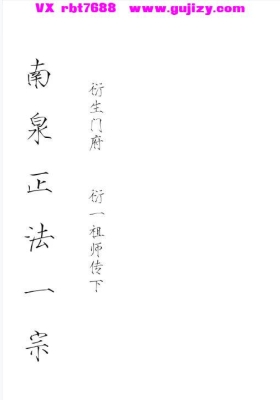 VX rbt7688 www.gujizy.com
衍生门府 衍一祖师传下
南泉正法一宗